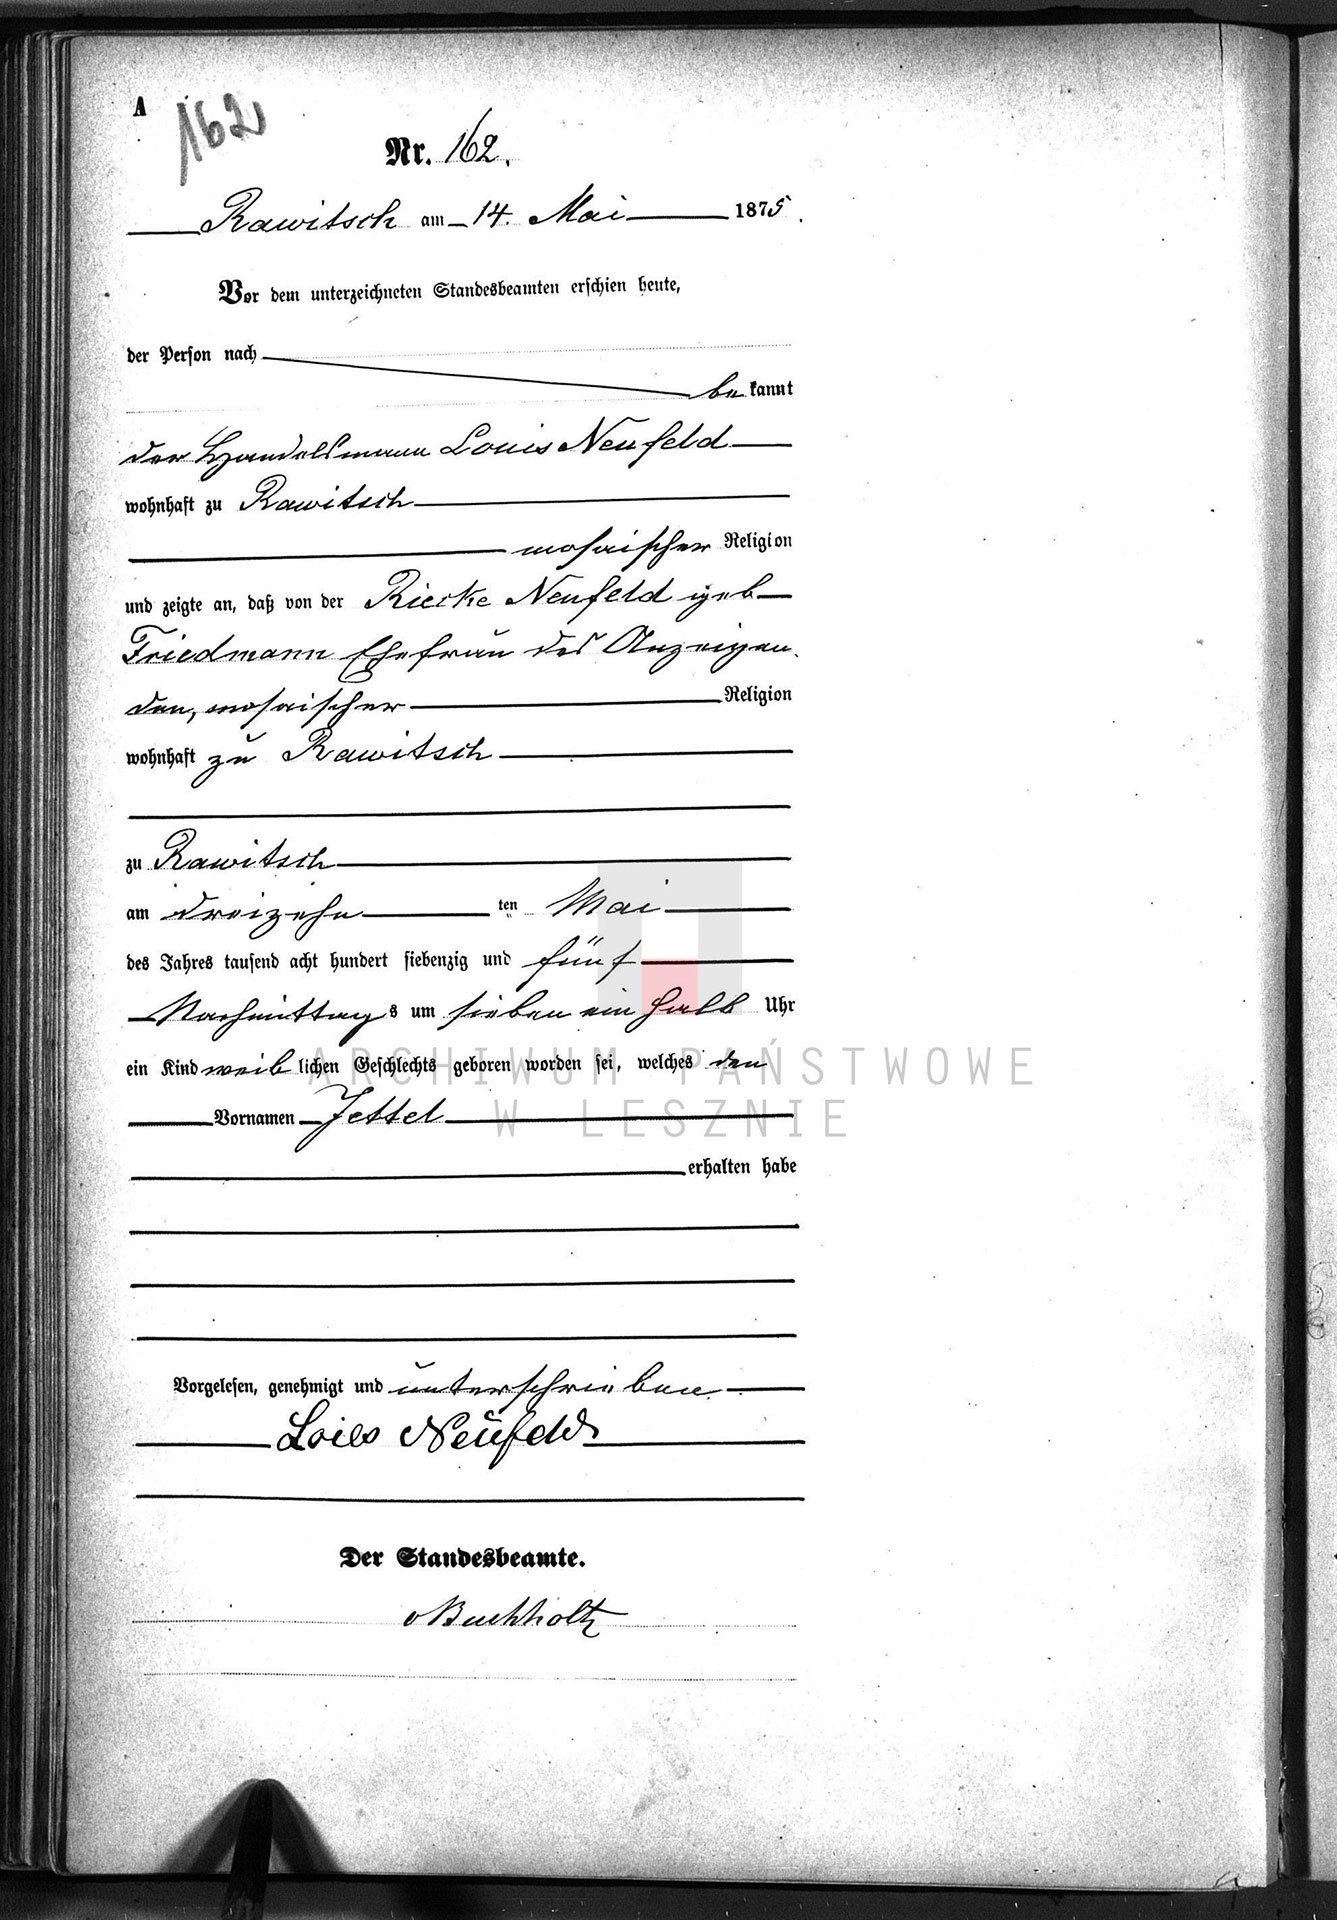 A
162
Nr. 162.
Rawitsch am 14. Mai 1875.
Vor dem unterzeichneten Standesbeamten erschien heute,
der Person nach
bekannt
der Handelsmann Louis Neufeld
wohnhaft zu Rawitsch
mosaischer Religion
und zeigte an, daß von der Riecke Neufeld geb
Friedmann Ehefrau des Anzeigen-
den, mosaischer Religion
wohnhaft zu Rawitsch
zu Rawitsch
am dreizehn ten Mai
des Jahres tausend acht hundert siebenzig und fünf
Nachmittags um sieben ein halb Uhr
ein Kind weiblichen Geschlechts geboren worden sei, welches den
Vornamen Jettel
erhalten habe
ARCHIWUM PAŃSTWOWE
W LESZNIE
Vorgelesen, genehmigt und unterschrieben
Loies Neufeld
Der Standesbeamte.
vBuchholtz